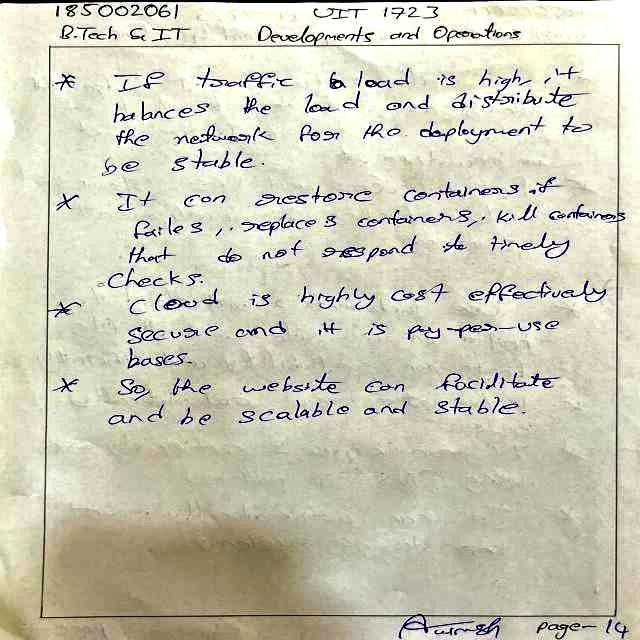 185002061 UIT 1723
B.Tech & IT Developments and Operations
* If traffic & load is high, it
balances the load and distribute
the network for the deployment to
be stable.
* It can restore containers if
failes, replaces containers, kill containers
that do not respond to timely
checks.
* Cloud is highly cost effectively
secure and it is pay-per-use
bases.
* So, the website can faciditate
and be scalable and stable.
page-14